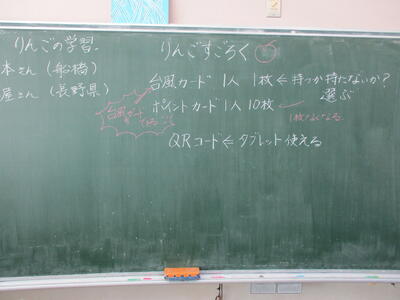 りんごの学習.
本さん（船橋）
屋さん（長野県）
りんごすごろく
台風カード 1人 1枚 ⇐ 持つか持たないか？
選ぶ
ポイントカード 1人 10枚
1枚なくなる
台風カード
QRコード ⇐ タブレット使える